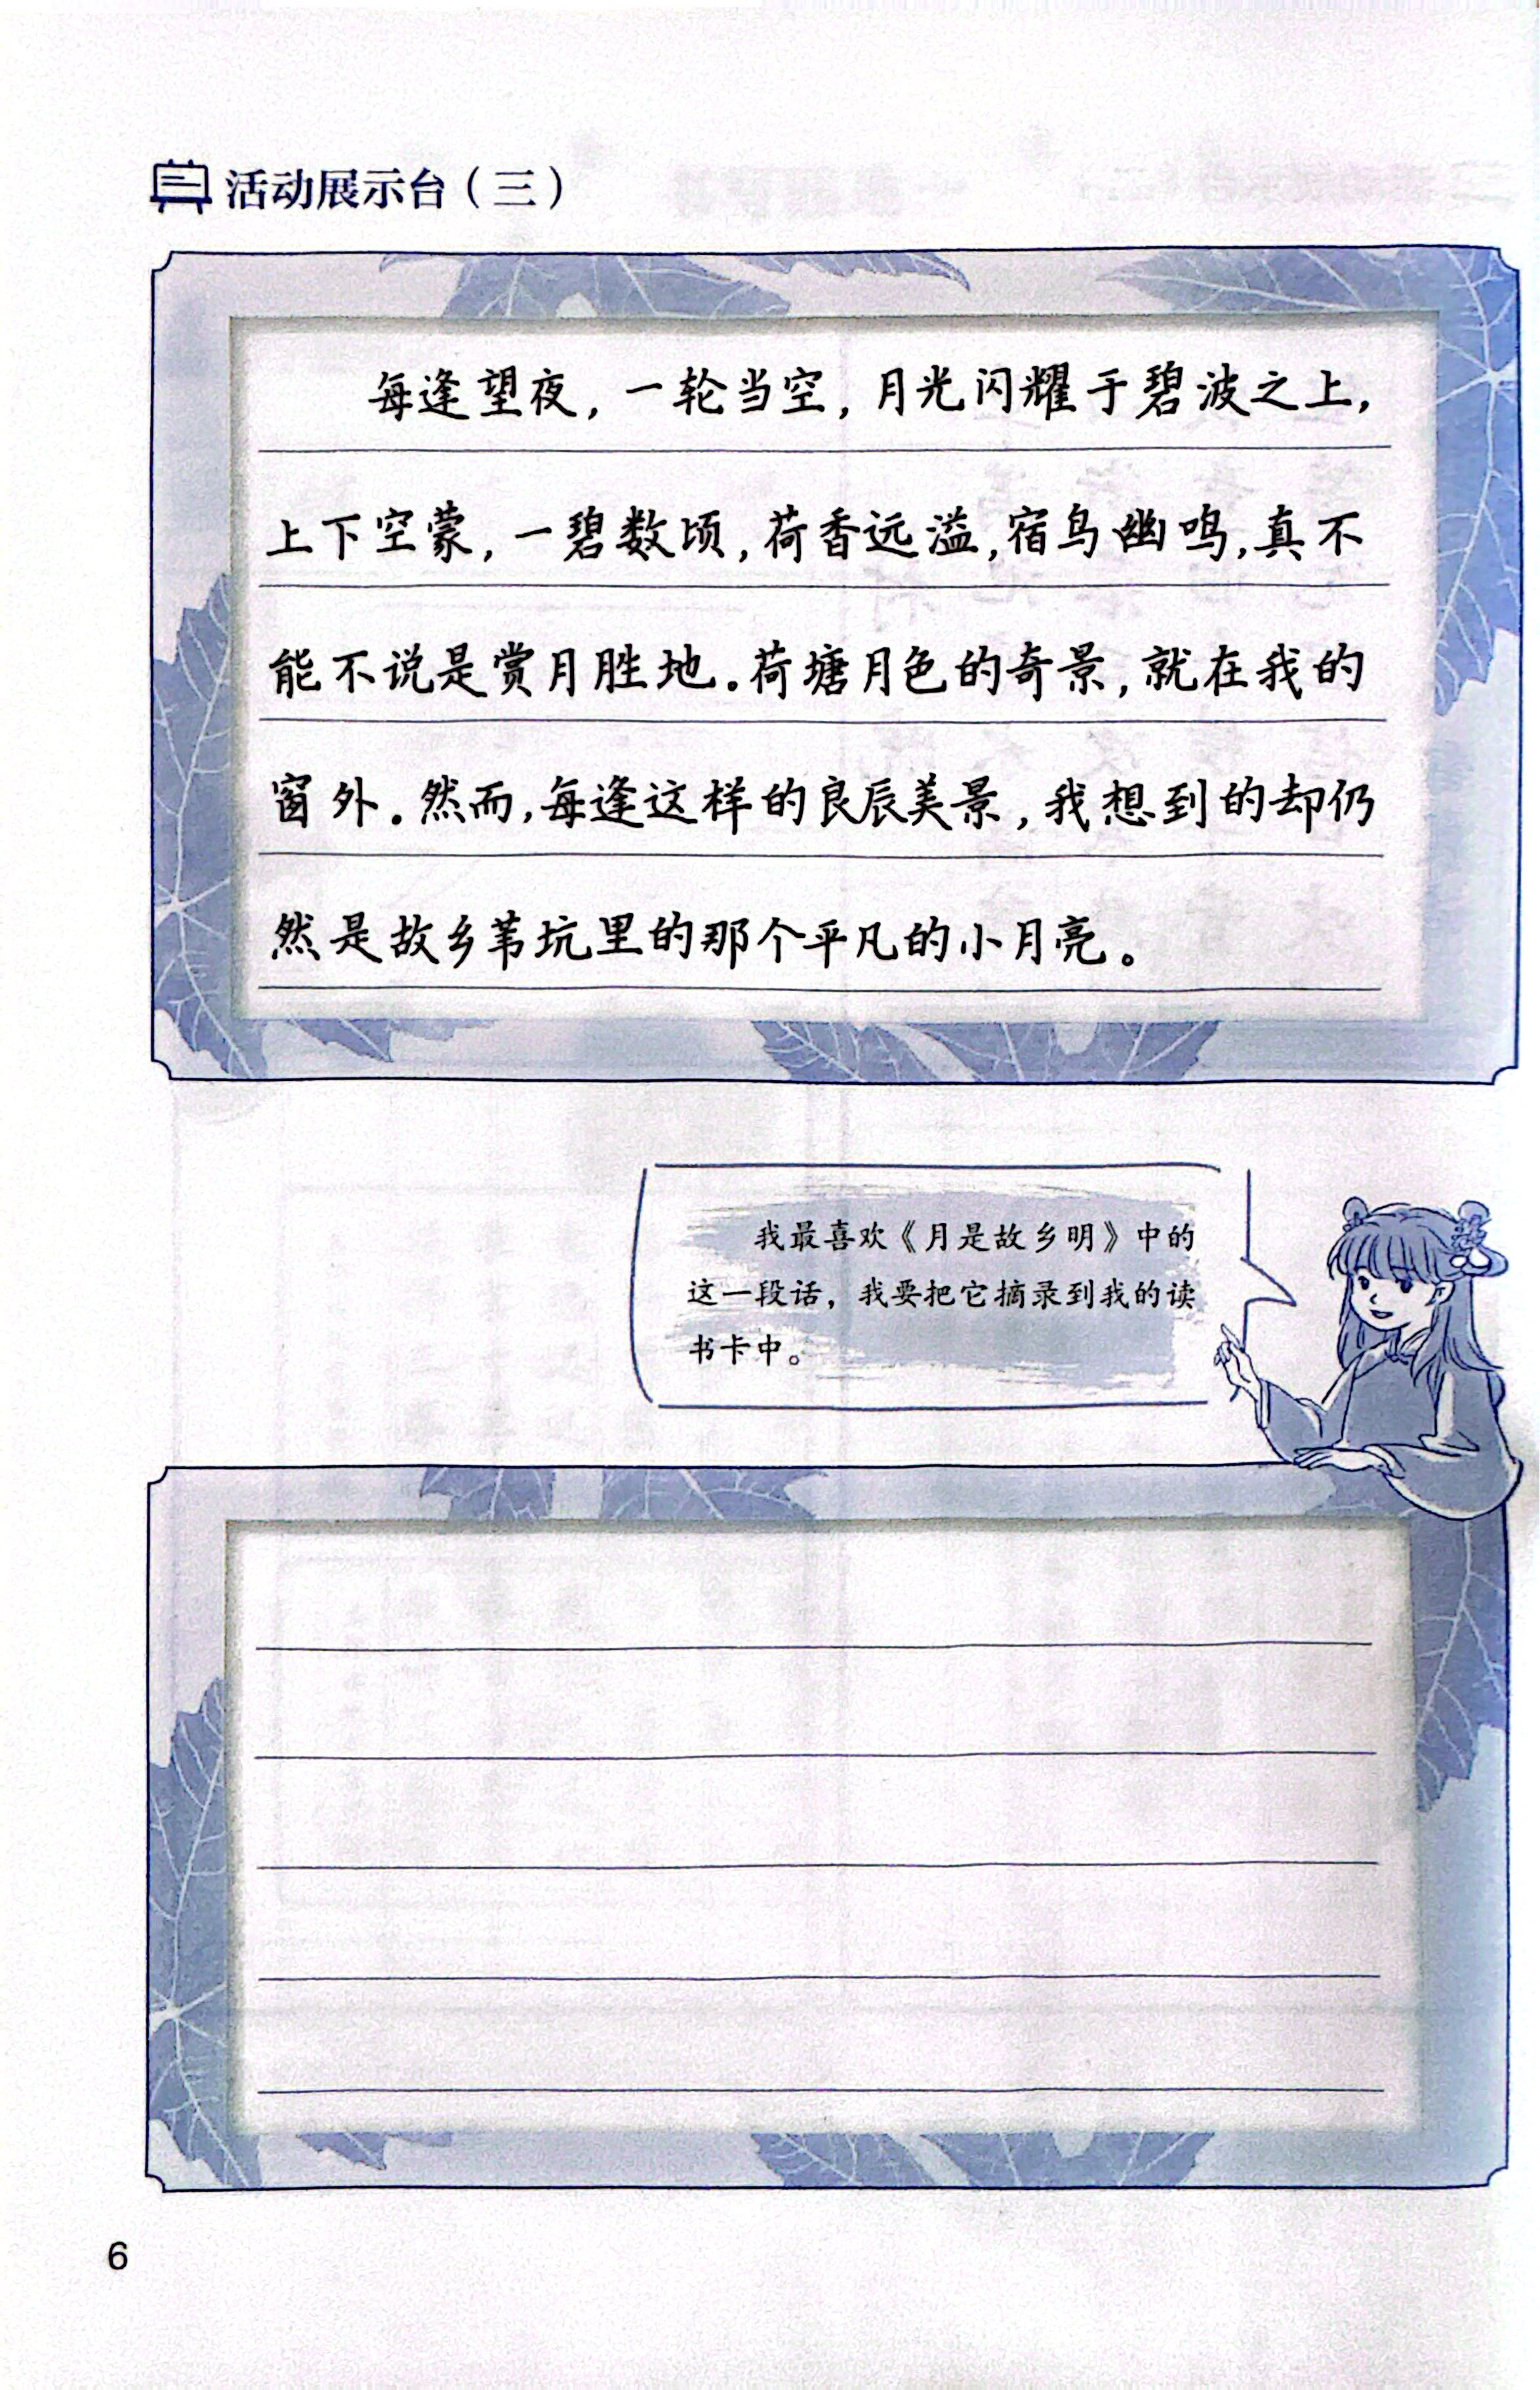 活动展示台（三）
每逢望夜，一轮当空，月光闪耀于碧波之上，
上下空蒙，一碧数顷，荷香远溢，宿鸟幽鸣，真不
能不说是赏月胜地。荷塘月色的奇景，就在我的
窗外。然而，每逢这样的良辰美景，我想到的却仍
然是故乡苇坑里的那个平凡的小月亮。
我最喜欢《月是故乡明》中的
这一段话，我要把它摘录到我的读
书卡中。
6